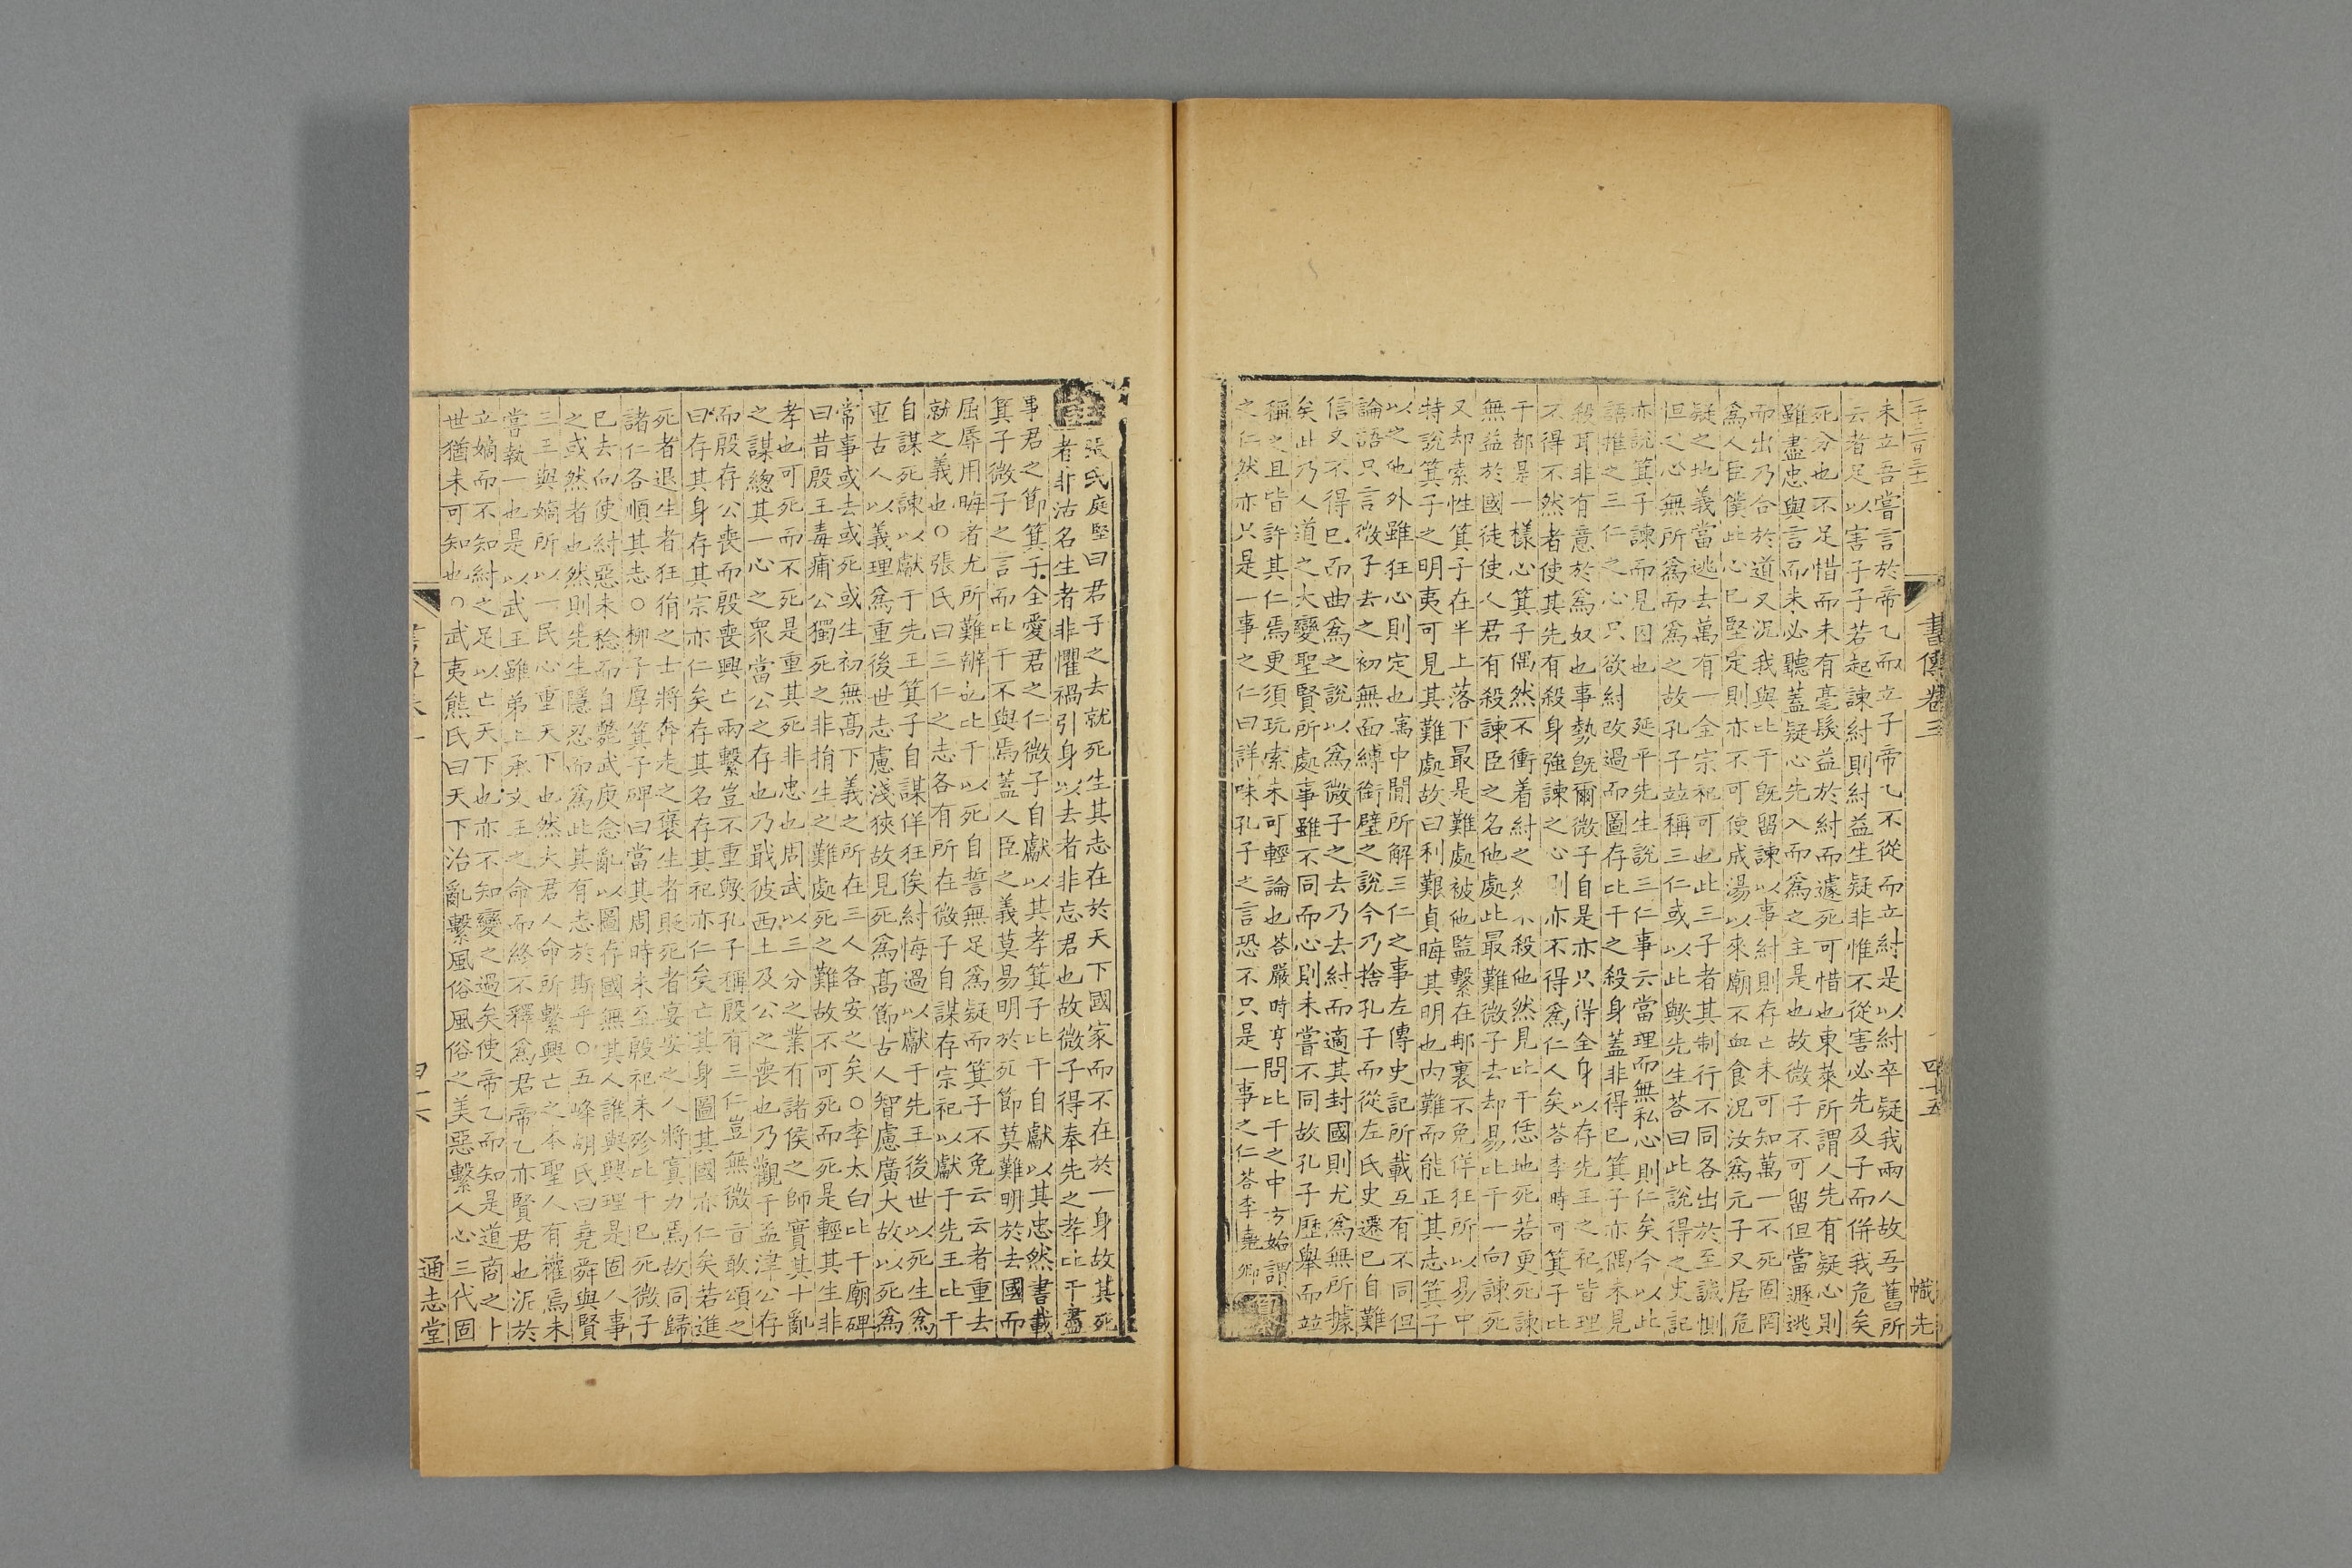 書傳卷三 四十五 幟先
未立吾嘗言於帝乙而立子帝乙不從而立紂是以紂卒疑我兩人故吾舊所
云者足以害子子若起諫紂則紂益生疑非惟不從害必先及子而併我危矣
死分也不足惜而未有毫髮益於紂而遽死可惜也東萊所謂人先有疑心則
雖盡忠與言而未必聽蓋疑心先入而爲之主是也故微子不可留但當遯逃
而出乃合於道又況我與比干旣留諫以事紂則存亡未可知萬一不死固罔
爲人臣僕此心已堅定則亦不可使成湯以來廟不血食況汝爲元子又居危
疑之地義當逃去萬有一全宗祀可也此三子者其制行不同各出於至誠惻
怛之心無所爲而爲之故孔子竝稱三仁或以此歟先生荅曰此說得之史記
亦說箕子諫而見囚也 延平先生說三仁事云當理而無私心則仁矣今以此
語推之三仁之心只欲紂改過而圖存比干之殺身蓋非得已箕子亦偶未見
殺耳非有意於爲奴也事勢旣爾微子自是亦只得全身以存先王之祀皆理
不得不然者使其先有殺身強諫之心則亦不得爲仁人矣荅李時可箕子比
干都是一樣心箕子偶然不衝着紂之 不殺他然見比干恁地死若更死諫
無益於國徒使人君有殺諫臣之名他處此最難微子去却易比干一向諫死
又却索性箕子在半上落下最是難處被他監繫在那裏不免佯狂所以易中
特說箕子之明夷可見其難處故曰利艱貞晦其明也內難而能正其志箕子
以之他外雖狂心則定也 中閒所解三仁之事左傳史記所載互有不同但
論語只言微子去之初無面縛銜璧之說今乃捨孔子而從左氏史遷已自難
信又不得已而曲爲之說以爲微子之去乃去紂而適其封國則尤爲無所據
矣此乃人道之大變聖賢所處事雖不同而心則未嘗不同故孔子歷舉而竝
稱之且皆許其仁焉更須玩索未可輕論也荅嚴時亨問比干之中方始謂
之仁然亦只是一事之仁曰詳味孔子之言恐不只是一事之仁荅李堯卿
張氏庭堅曰君子之去就死生其志在於天下國家而不在於一身故其死
者非沽名生者非懼禍引身以去者非忘君也故微子得奉先之孝比干盡
事君之節箕子全愛君之仁微子自獻以其孝箕子比干自獻以其忠然書載
箕子微子之言而比干不與焉蓋人臣之義莫易明於死節莫難明於去國而
屈辱用晦者尤所難辨也比干以死自誓無足爲疑而箕子不免云云者重去
就之義也○張氏曰三仁之志各有所在微子自謀存宗祀以獻于先王比干
自謀死諫以獻于先王箕子自謀佯狂俟紂悔過以獻于先王後世以死生爲
重古人以義理爲重後世志慮淺狹故見死爲高節古人智慮廣大故以死爲
常事或去或死或生初無高下義之所在三人各安之矣○李太白比干廟碑
曰昔殷王毒痡公獨死之非捐生之難處死之難故不可死而死是輕其生非
孝也可死而不死是重其死非忠也周武以三分之業有諸侯之師實其十亂
之謀總其一心之衆當公之存也乃戢彼西土及公之喪也乃觀于孟津公存
而殷存公喪而殷喪興亡兩繫豈不重歟孔子稱殷有三仁豈無微旨敢頌之
曰存其身存其宗亦仁矣存其名存其祀亦仁矣亡其身圖其國亦仁矣若進
死者退生者狂狷之士將奔走之褒生者貶死者宴安之人將寘力焉故同歸
諸仁各順其志○柳子厚箕子碑曰當其周時未至殷祀未殄比干已死微子
已去向使紂惡未稔而自斃武庚念亂以圖存國無其人誰與興理是固人事
之或然者也然則先生隱忍而爲此其有志於斯乎○五峰胡氏曰堯舜與賢
三王與嫡所以一民心重天下也然大君人命所繫興亡之本聖人有權焉未
嘗執一也是以武王雖弟上承文王之命而終不釋爲君帝乙亦賢君也泥於
立嫡而不知紂之足以亡天下也亦不知變之過矣使帝乙而知是道商之卜
世猶未可知也○武夷熊氏曰天下治亂繫風俗風俗之美惡繫人心三代固
通志堂